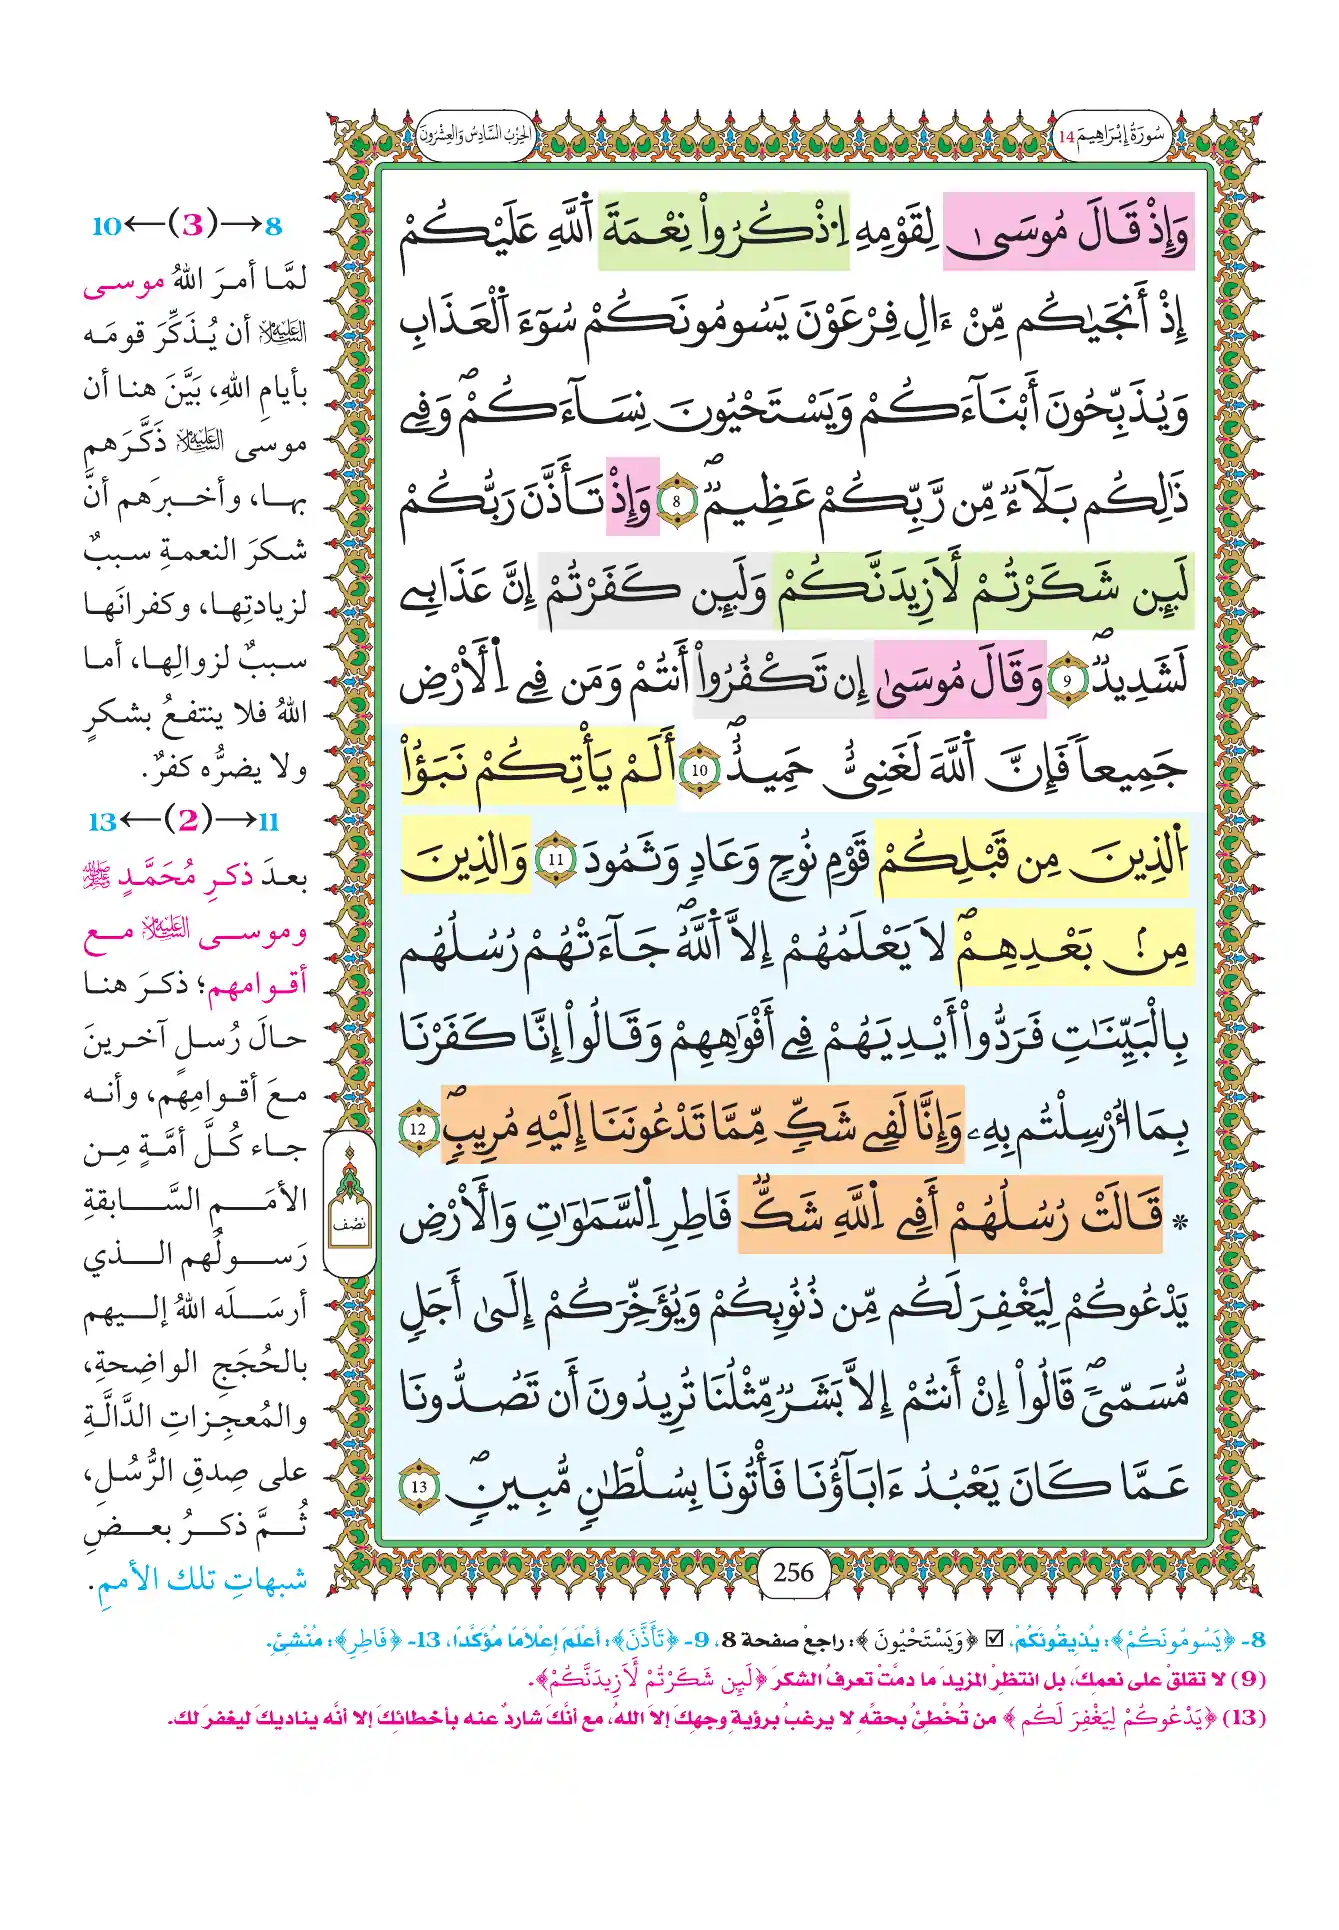 سُورَةُ إِبْرَاهِيمَ 14
الحِزْبُ السَّادِسُ وَالعِشْرُونَ
وَإِذْ قَالَ مُوسَىٰ لِقَوْمِهِ اِ۟ذْكُرُواْ نِعْمَةَ اَ۬للَّهِ عَلَيْكُمْ
إِذْ أَنجَيٰكُم مِّنْ ءَالِ فِرْعَوْنَ يَسُومُونَكُمْ سُوٓءَ اَ۬لْعَذَابِ
وَيُذَبِّحُونَ أَبْنَآءَكُمْ وَيَسْتَحْيُونَ نِسَآءَكُمْۖ وَفِے
ذَٰلِكُم بَلَآءٌ مِّن رَّبِّكُمْ عَظِيمٌۖ 8 وَإِذْ تَأَذَّنَ رَبُّكُمْ
لَئِن شَكَرْتُمْ لَأَزِيدَنَّكُمْ وَلَئِن كَفَرْتُمْ إِنَّ عَذَابِے
لَشَدِيدٌۖ 9 وَقَالَ مُوسَىٰ إِن تَكْفُرُوٓاْ أَنتُمْ وَمَن فِے اِ۬لْأَرْضِ
جَمِيعاً فَإِنَّ اَ۬للَّهَ لَغَنِيٌّ حَمِيدٌۖ 10 أَلَمْ يَأْتِكُمْ نَبَؤُاْ
اُ۬لذِينَ مِن قَبْلِكُمْ قَوْمِ نُوحٍ وَعَادٍ وَثَمُودَ 11 وَالذِينَ
مِنۢ بَعْدِهِمْۖ لَا يَعْلَمُهُمْ إِلَّا اَ۬للَّهُۖ جَآءَتْهُمْ رُسُلُهُم
بِالْبَيِّنَٰتِ فَرَدُّوٓاْ أَيْدِيَهُمْ فِےٓ أَفْوَٰهِهِمْ وَقَالُوٓاْ إِنَّا كَفَرْنَا
بِمَآ أُرْسِلْتُم بِهِۦ وَإِنَّا لَفِے شَكٍّ مِّمَّا تَدْعُونَنَآ إِلَيْهِ مُرِيبٍۖ 12
* قَالَتْ رُسُلُهُمْ أَفِے اِ۬للَّهِ شَكٌّ فَاطِرِ اِ۬لسَّمَٰوَٰتِ وَالْأَرْضِ
يَدْعُوكُمْ لِيَغْفِرَ لَكُم مِّن ذُنُوبِكُمْ وَيُؤَخِّرَكُمْ إِلَىٰٓ أَجَلٍ
مُّسَمّىٗۖ قَالُوٓاْ إِنْ أَنتُمْ إِلَّا بَشَرٌ مِّثْلُنَا تُرِيدُونَ أَن تَصُدُّونَا
عَمَّا كَانَ يَعْبُدُ ءَابَآؤُنَا فَأْتُونَا بِسُلْطَٰنٍ مُّبِينٍۖ 13
نصف
256
8→(3)←10
لمَّا أمرَ اللهُ موسى
عليه السلام أن يُذَكِّرَ قومَه
بأيامِ اللهِ، بَيَّنَ هنا أن
موسى عليه السلام ذَكَّرَهم
بها، وأخبرَهم أنَّ
شكرَ النعمةِ سببٌ
لزيادتِها، وكفرانَها
سببٌ لزوالِها، أما
اللهُ فلا ينتفعُ بشكرٍ
ولا يضرُّه كفرٌ.
11→(2)←13
بعدَ ذكرِ مُحَمَّدٍ ﷺ
وموسى عليه السلام مع
أقوامِهم؛ ذكرَ هنا
حالَ رُسلٍ آخرينَ
معَ أقوامِهم، وأنه
جاء كُلَّ أمَّةٍ مِن
الأمَمِ السَّابقةِ
رَسولُهم الذي
أرسَلَه اللهُ إليهم
بالحُجَجِ الواضِحةِ،
والمُعجِزاتِ الدَّالَّةِ
على صِدقِ الرُّسُلِ،
ثُمَّ ذكرُ بعضِ
شبهاتِ تلك الأممِ.
8- ﴿يَسُومُونَكُمْ﴾: يُذِيقُونَكُمْ، ☑ ﴿وَيَسْتَحْيُونَ﴾: راجعْ صفحة 8، 9- ﴿تَأَذَّنَ﴾: أَعْلَمَ إِعْلَامًا مُؤَكَّدًا، 13- ﴿فَاطِرِ﴾: مُنْشِئِ.
(9) لا تقلقْ على نعمِكَ، بل انتظرِ المزيدَ ما دمَّتْ تعرفُ الشكرَ ﴿لَئِن شَكَرْتُمْ لَأَزِيدَنَّكُمْ﴾.
(13) ﴿يَدْعُوكُمْ لِيَغْفِرَ لَكُم﴾ من تُخْطِئُ بحقِّهِ لا يرغبُ برؤيةِ وجهِكَ إلا اللهُ، مع أنَّكَ شاردٌ عنه بأخطائِكَ إلا أنَّه يناديكَ ليغفرَ لك.